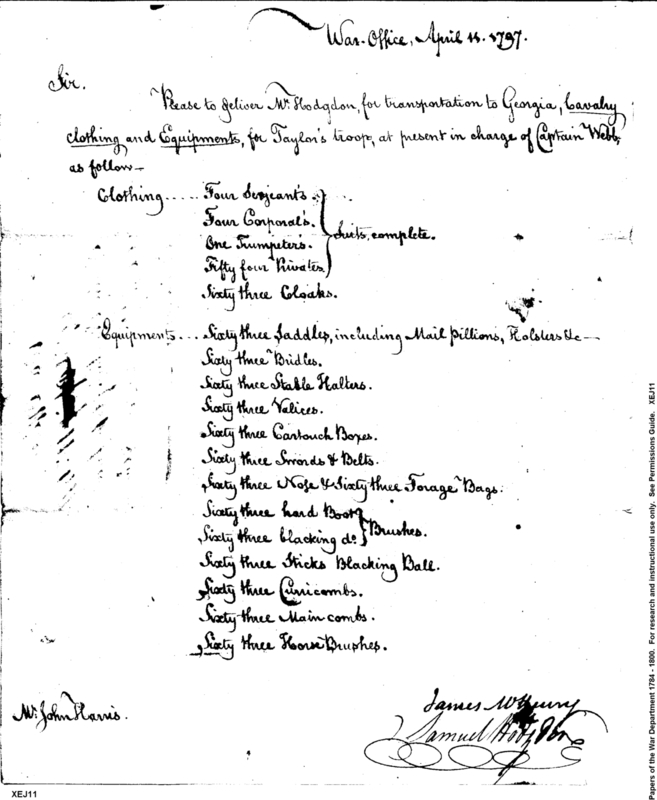 War-Office, April 11. 1797.
Sir.
Please to deliver Mr. Hodgdon, for transportation to Georgia, Cavalry
clothing and Equipments, for Taylor's troop, at present in charge of Captain Webb,
as follow—
Clothing.... Four Serjeant's.
Four Corporal's.
One Trumpeter's. } suits, complete.
Fifty four Privates
Sixty three Cloaks.
Equipments... Sixty three Saddles, including Mail pillions, Holsters &c—
Sixty three Bridles.
Sixty three Stable Halters.
Sixty three Valices.
Sixty three Cartouch Boxes.
Sixty three Swords & Belts.
Sixty three Nose & Sixty three Forage Bags.
Sixty three hard Boot
Sixty three blacking do. } Brushes.
Sixty three Sticks Blacking Ball.
Sixty three Curricombs.
Sixty three Main combs.
Sixty three Horse Brushes.
James McHenry
Mr. John Harris.
Samuel Hodgdon
XEJ11
Papers of the War Department 1784 - 1800. For research and instructional use only. See Permissions Guide. XEJ11